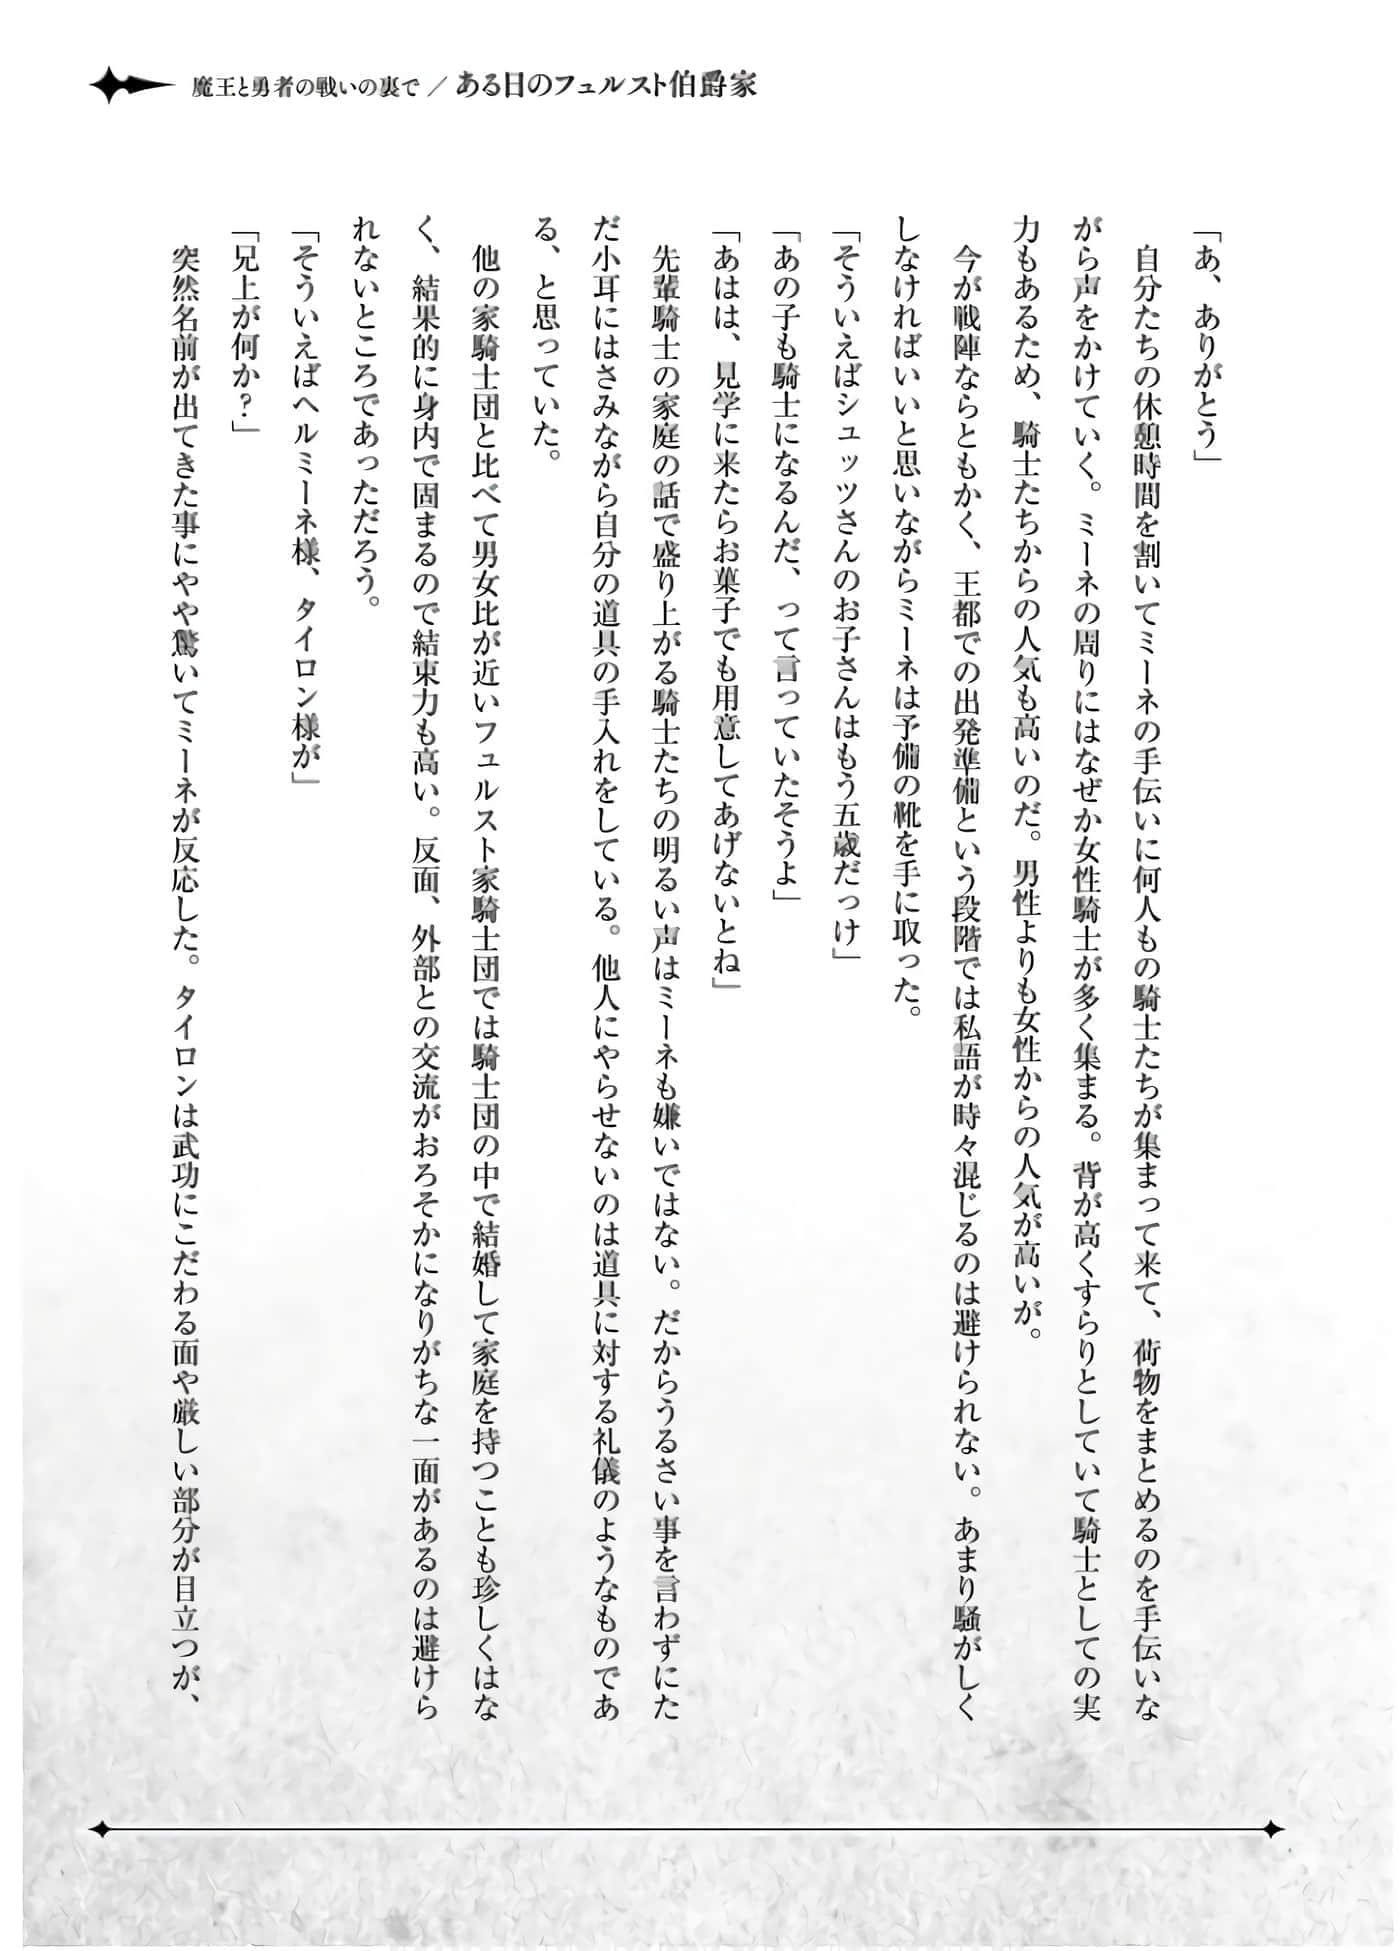 魔王と勇者の戦いの裏で／ある日のフュルスト伯爵家
「あ、ありがとう」
　自分たちの休憩時間を割いてミーネの手伝いに何人もの騎士たちが集まって来て、荷物をまとめるのを手伝いな
がら声をかけていく。ミーネの周りにはなぜか女性騎士が多く集まる。背が高くすらりとしていて騎士としての実
力もあるため、騎士たちからの人気も高いのだ。男性よりも女性からの人気が高いが。
　今が戦陣ならともかく、王都での出発準備という段階では私語が時々混じるのは避けられない。あまり騒がしく
しなければいいと思いながらミーネは予備の靴を手に取った。
「そういえばシュッツさんのお子さんはもう五歳だっけ」
「あの子も騎士になるんだ、って言っていたそうよ」
「あはは、見学に来たらお菓子でも用意してあげないとね」
　先輩騎士の家庭の話で盛り上がる騎士たちの明るい声はミーネも嫌いではない。だからうるさい事を言わずにた
だ小耳にはさみながら自分の道具の手入れをしている。他人にやらせないのは道具に対する礼儀のようなものであ
る、と思っていた。
　他の家騎士団と比べて男女比が近いフュルスト家騎士団では騎士団の中で結婚して家庭を持つことも珍しくはな
く、結果的に身内で固まるので結束力も高い。反面、外部との交流がおろそかになりがちな一面があるのは避けら
れないところであっただろう。
「そういえばヘルミーネ様、タイロン様が」
「兄上が何か？」
　突然名前が出てきた事にやや驚いてミーネが反応した。タイロンは武功にこだわる面や厳しい部分が目立つが、